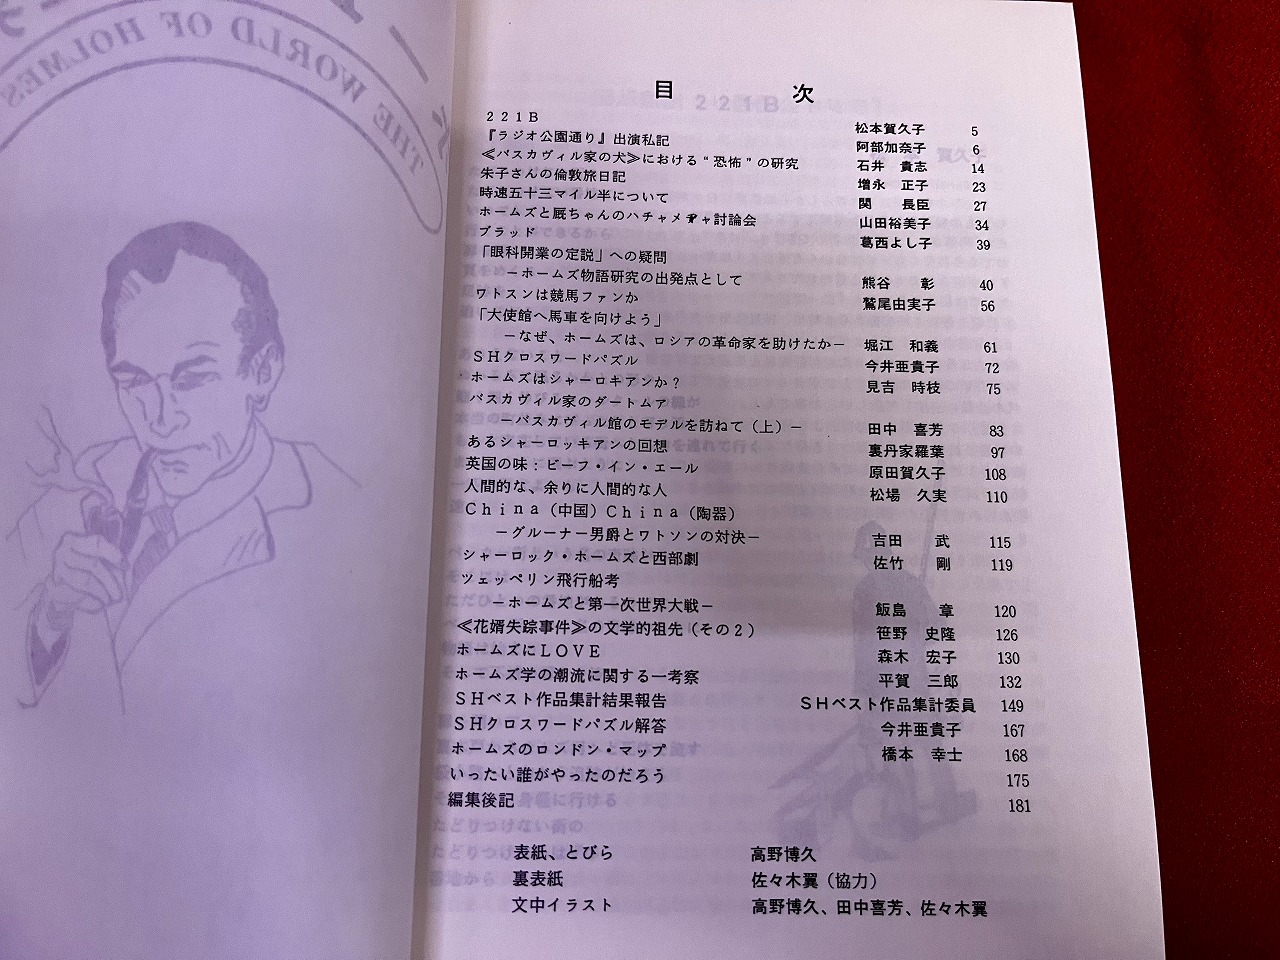 THE WORLD OF HOLMES
目 次
221B 松本賀久子 5
『ラジオ公園通り』出演私記 阿部加奈子 6
≪バスカヴィル家の犬≫における“恐怖”の研究 石井 貴志 14
朱子さんの倫敦旅日記 増永 正子 23
時速五十三マイル半について 関 長臣 27
ホームズと厩ちゃんのハチャメチャ討論会 山田裕美子 34
ブラッド 葛西よし子 39
「眼科開業の定説」への疑問
－ホームズ物語研究の出発点として 熊谷 彰 40
ワトスンは競馬ファンか 鷲尾由実子 56
「大使館へ馬車を向けよう」
－なぜ、ホームズは、ロシアの革命家を助けたか－ 堀江 和義 61
SHクロスワードパズル 今井亜貴子 72
ホームズはシャーロキアンか？ 見吉 時枝 75
バスカヴィル家のダートムア
－バスカヴィル館のモデルを訪ねて（上）－ 田中 喜芳 83
あるシャーロッキアンの回想 裏丹家羅葉 97
英国の味：ビーフ・イン・エール 原田賀久子 108
人間的な、余りに人間的な人 松場 久実 110
China（中国）China（陶器）
－グルーナー男爵とワトソンの対決－ 吉田 武 115
シャーロック・ホームズと西部劇 佐竹 剛 119
ツェッペリン飛行船考
－ホームズと第一次世界大戦－ 飯島 章 120
≪花婿失踪事件≫の文学的祖先（その2） 笹野 史隆 126
ホームズにLOVE 森木 宏子 130
ホームズ学の潮流に関する一考察 平賀 三郎 132
SHベスト作品集計結果報告 SHベスト作品集計委員 149
SHクロスワードパズル解答 今井亜貴子 167
ホームズのロンドン・マップ 橋本 幸士 168
いったい誰がやったのだろう 175
編集後記 181
表紙、とびら 高野博久
裏表紙 佐々木翼（協力）
文中イラスト 高野博久、田中喜芳、佐々木翼